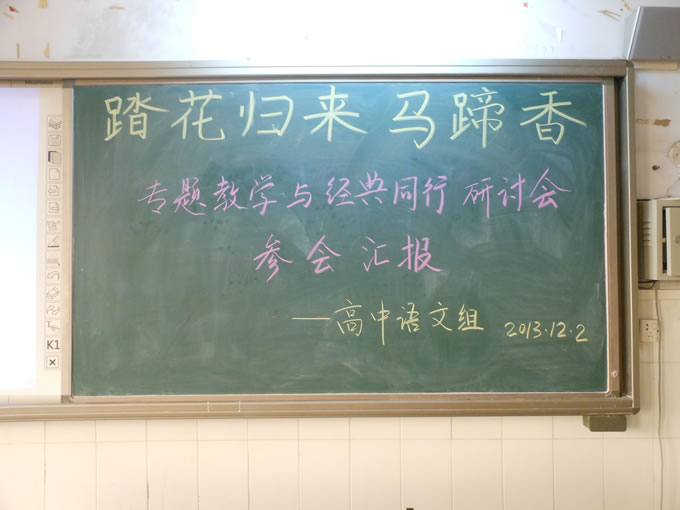 踏花归来马蹄香
专题教学与经典同行研讨会
参会汇报
——高中语文组 2013.12.2
K1